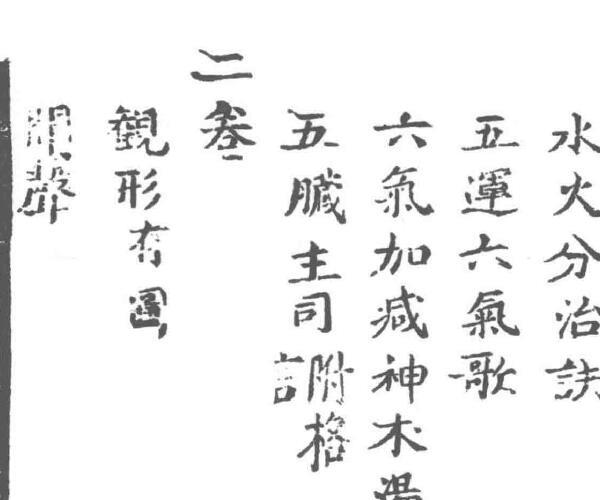 水火分治訣
五運六氣歌
六氣加減神木湯
五臟主司附格言
二卷
觀形有圖
聞聲